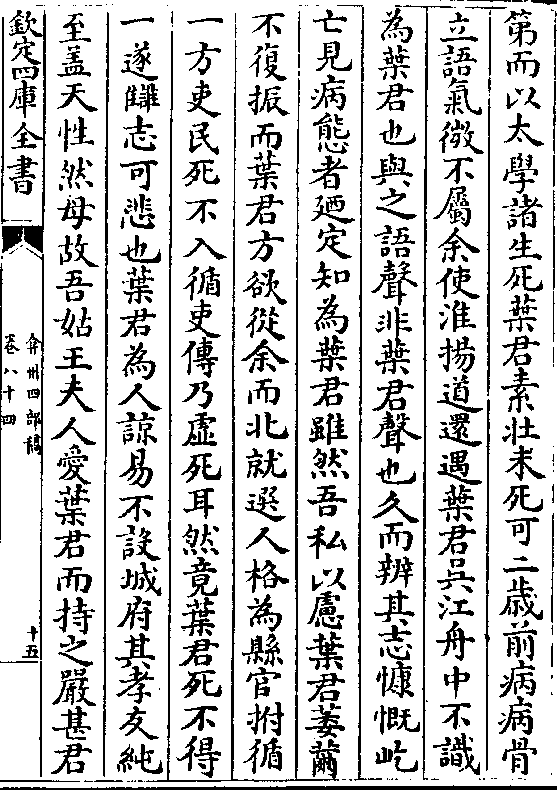 第而以太學諸生死葉君素壯未死可二歳前病病骨
立語氣微不屬余使淮揚道還遇葉君吳江舟中不識
為葉君也與之語聲非葉君聲也久而辨其志慷慨屹
亡見病態者廼定知為葉君雖然吾私以慮葉君萎薾
不復振而葉君方欲從余而北就選人格為縣官拊循
一方吏民死不入循吏傳乃虛死耳然竟葉君死不得
一遂讎志可悲也葉君為人諒易不設城府其孝友純
至盖天性然母故吾姑王夫人愛葉君而持之嚴甚君
欽定四庫全書
弇州四部稿
卷八十四
十五